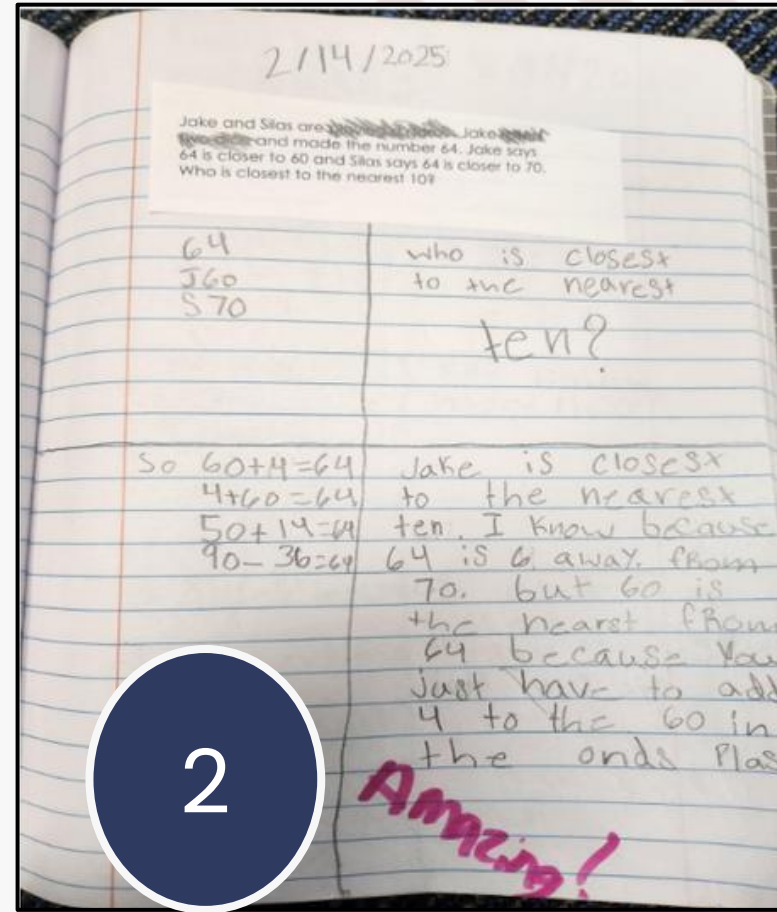 2/14/2025
Jake and Silas are Jake
and made the number 64. Jake says
64 is closer to 60 and Silas says 64 is closer to 70.
Who is closest to the nearest 10?
64
J60
S70
who is closest
to the nearest
ten?
So 60+4=64
4+60=64
50+14=64
90-36=64
Jake is closest
to the nearest
ten. I know because
64 is 6 away. fRom
70. but 60 is
the nearst fRom
64 because You
just have to add
4 to the 60 in
the onds Plas
Amazing!
2